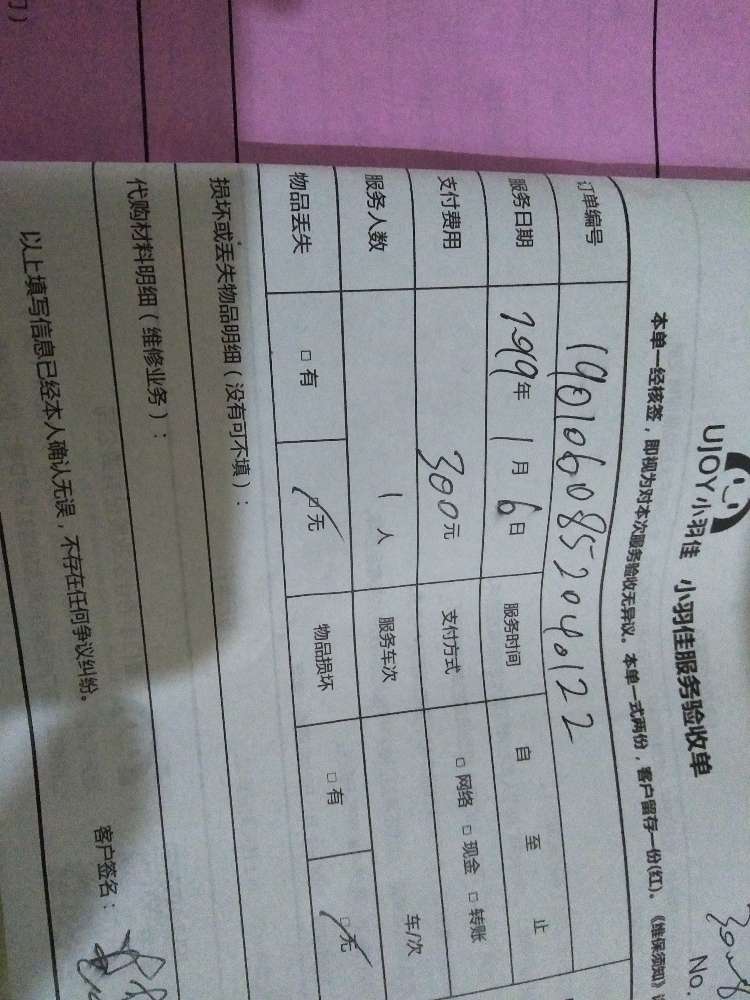 UJOY小羽佳 小羽佳服务验收单
No.
本单一经核签，即视为对本次服务验收无异议。本单一式两份，客户留存一份(红)。《维保须知》
订单编号 1901060852040122
服务日期 199年 1月 6日 服务时间 自 至 止
支付费用 300元 支付方式 □网络 □现金 □转账
服务人数 1人 服务车次 车/次
物品丢失 □有 □无 物品损坏 □有 □无
损坏或丢失物品明细（没有可不填）：
代购材料明细（维修业务）：
以上填写信息已经本人确认无误，不存在任何争议纠纷。
客户签名：